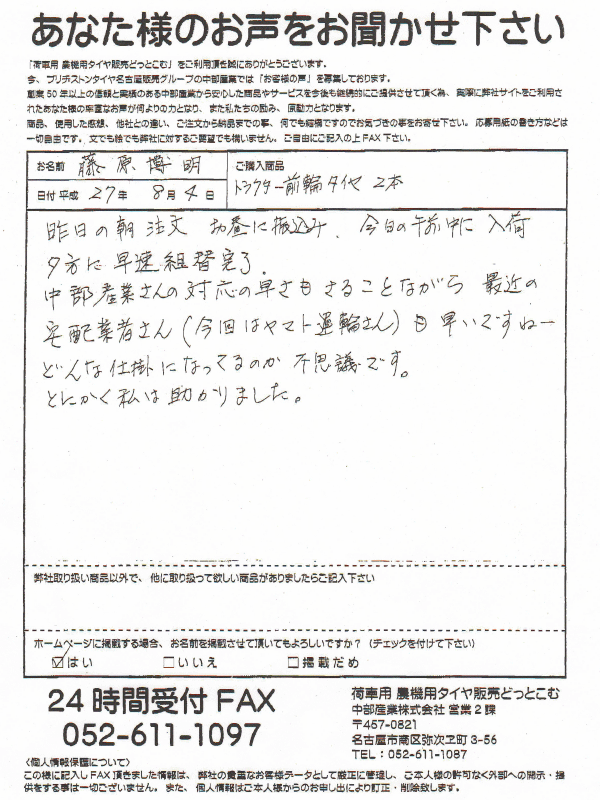 あなた様のお声をお聞かせ下さい
「荷車用 農機用タイヤ販売どっとこむ」をご利用頂き誠にありがとうございます。
今、ブリヂストンタイヤ名古屋販売グループの中部産業では「お客様の声」を募集しております。
創業50年以上の信頼と実績のある中部産業から安心した商品やサービスを今後も継続的にご提供させて頂く為、実際に弊社サイトをご利用さ
れたあなた様の率直なお声が何よりの力となり、また私たちの励み、原動力となります。
商品、使用した感想、他社との違い、ご注文から納品までの事、何でも結構ですのでお気づきの事をお寄せ下さい。応募用紙の書き方などは
一切自由です。文でも絵でも弊社に対するご要望でも構いません。ご自由にご記入の上FAX下さい。
お名前 藤原博明
ご購入商品
日付 平成 27年 8月 4日
トラクター前輪タイヤ 2本
昨日の朝 注文 お昼に振込み、今日の午前中に入荷
夕方に早速組替完了。
中部産業さんの対応の早さもさることながら 最近の
宅配業者さん(今回はヤマト運輸さん)も早いですねー
どんな仕掛になってるのか不思議です。
とにかく私は助かりました。
弊社取り扱い商品以外で、他に取り扱って欲しい商品がありましたらご記入下さい
ホームページに掲載する場合、お名前を掲載させて頂いてもよろしいですか?(チェックを付けて下さい)
☑はい □いいえ □掲載だめ
24時間受付FAX
052-611-1097
荷車用 農機用タイヤ販売どっとこむ
中部産業株式会社 営業2課
〒457-0821
名古屋市南区弥次ヱ町3-56
TEL:052-611-1087
〈個人情報保護について〉
この様に記入しFAX頂きました情報は、弊社の貴重なお客様データとして厳正に管理し、ご本人様の許可なく外部への開示・提
供をする事は一切ございません。また、個人情報はご本人様からのお申し出により訂正・削除致します。